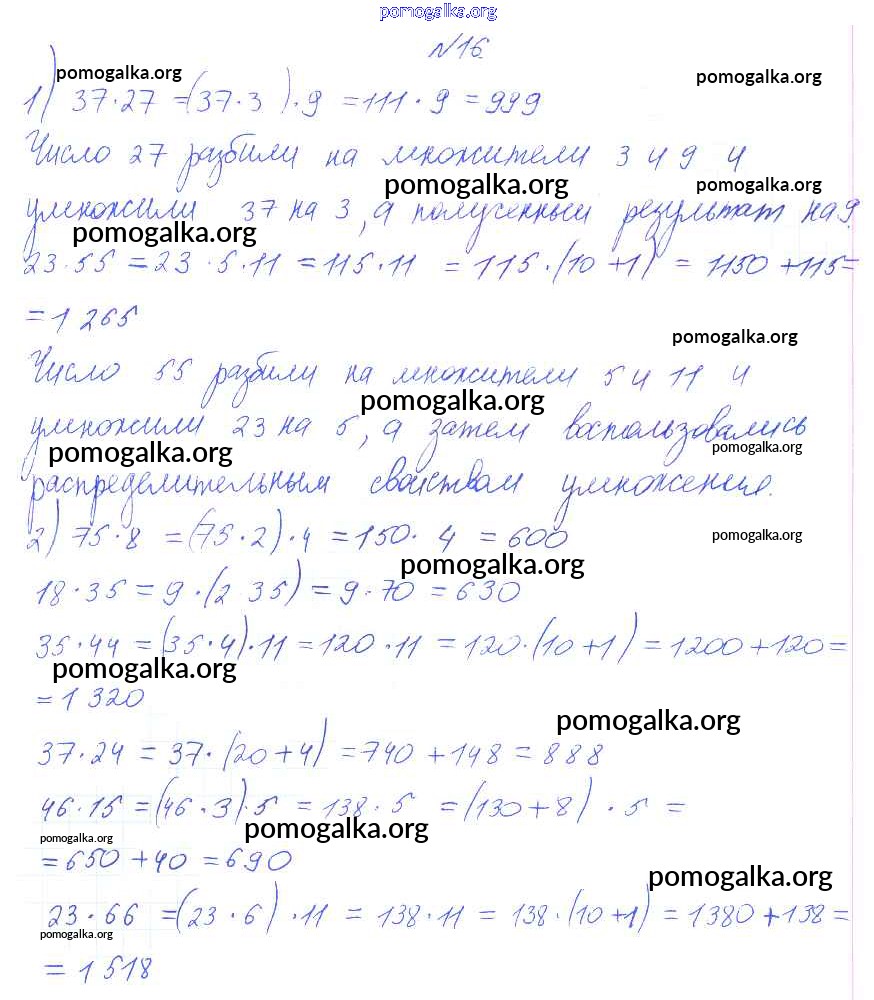 pomogalka.org
№16
pomogalka.org
pomogalka.org
1) 37·27 =(37·3)·9 =111·9 =999
Число 27 разбили на множители 3 и 9 и
pomogalka.org
pomogalka.org
умножили 37 на 3, а полученный результат на 9.
pomogalka.org
23·55 = 23·5·11 = 115·11 = 115·(10+1) = 1150+115=
=1 265
pomogalka.org
Число 55 разбили на множители 5 и 11 и
pomogalka.org
умножили 23 на 5, а затем воспользовались
pomogalka.org
pomogalka.org
распределительным свойством умножения.
2) 75·8 =(75·2)·4 =150·4 =600
pomogalka.org
pomogalka.org
18·35 = 9·(2 35) = 9·70 = 630
35·44 = (35·4)·11 = 120·11 = 120·(10+1) = 1200+120=
pomogalka.org
=1 320
pomogalka.org
37·24 = 37·(20+4) =740+148=888
46·15 =(46·3)·5 = 138·5 =(130+8)·5 =
pomogalka.org
pomogalka.org
=650+40 =690
pomogalka.org
23·66 =(23·6)·11 = 138·11 = 138·(10+1) = 1380+138=
pomogalka.org
= 1 518